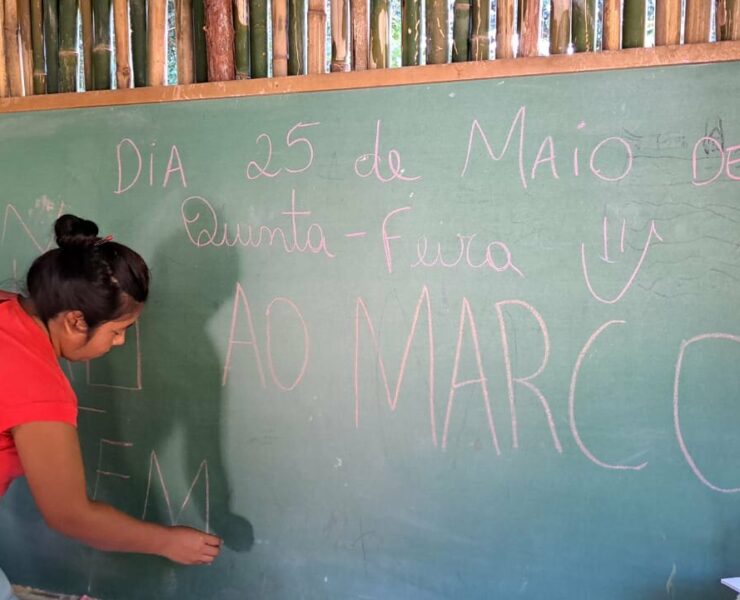 DIA 25 de MAIO DE
Quinta-Feira
AO MARCO
EM